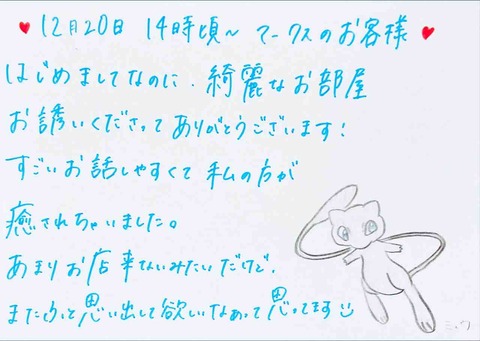 ♥ 12月20日 14時頃〜 マークスのお客様 ♥
はじめましてなのに、綺麗なお部屋
お誘いくださってありがとうございます!
すごいお話しやすくて私の方が
癒されちゃいました。
あまりお店来ないみたいだけど、
またふっと思い出して欲しいなあって思ってます
ミュウ